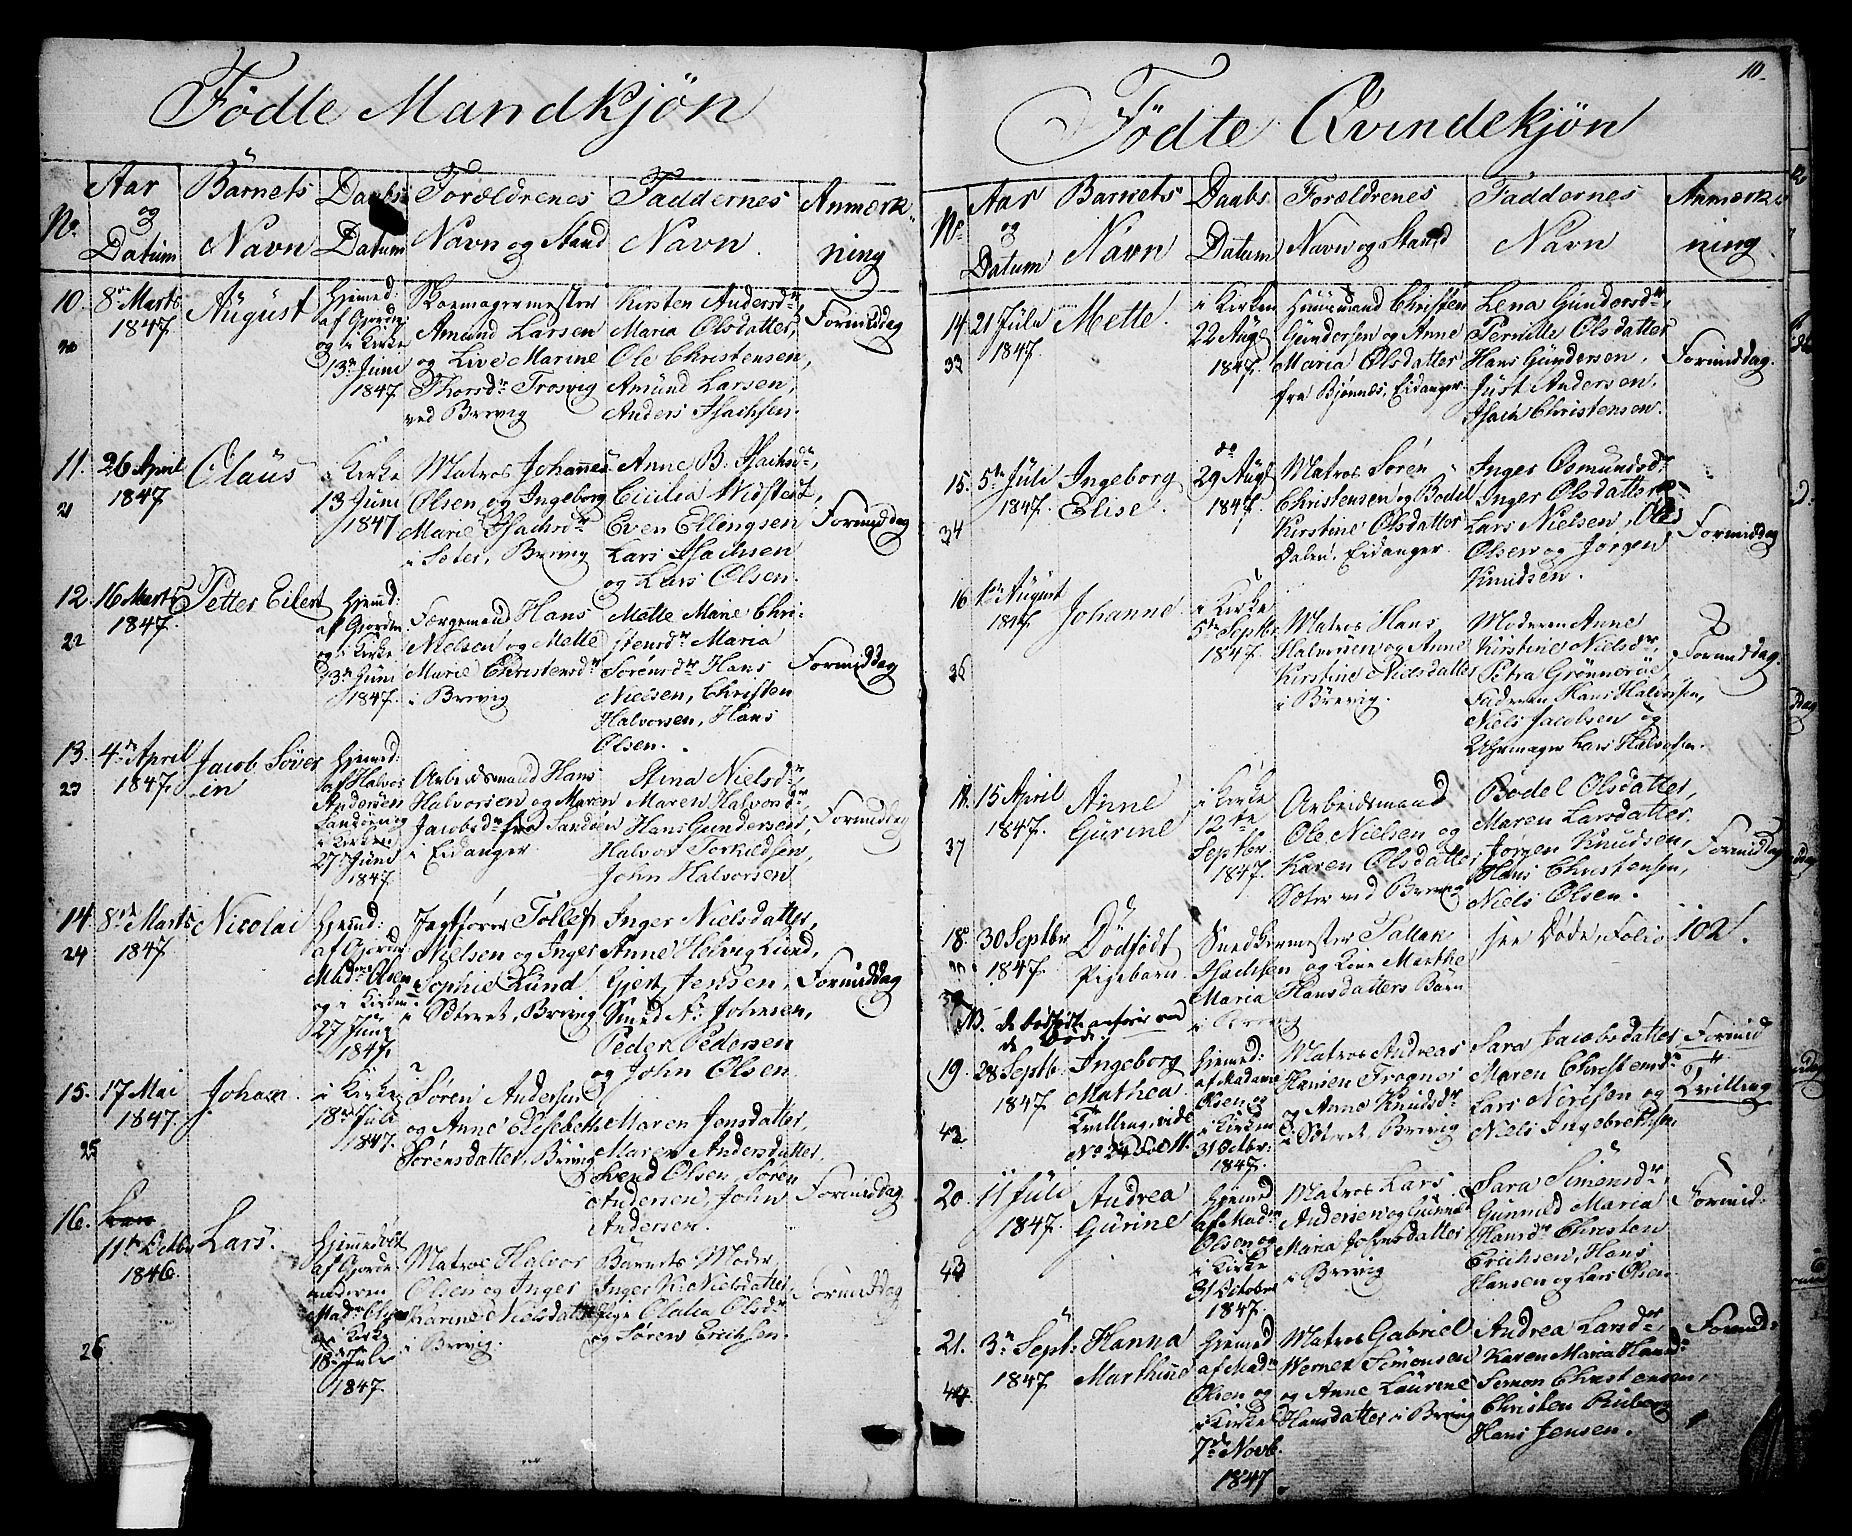 Födte Mandkjön
No.
Aar
og
Datum
Barnets
Navn
Daabs
Datum
Forældrenes
Navn og Stand
Faddernes
Navn.
Anmærk-
ning
10.
20
8de Marts
1847.
August
Hjemed:
af Gjorde
og i Kirke
13de Juni
1847.
Skoemagermester
Amund Larsen
og Live Marine
Thorsdr Trosvig
ved Brevig
Kirsten Andersdr,
Maria Olsdatter,
Ole Christensen,
Amund Larsen,
Anders Isachsen.
Formiddag
11.
21
26 April
1847.
Claus
i Kirke
13 Juni
1847
Matros Johannes
Olsen og Ingeborg
Marie Isachsdr
i Seter, Brevig
Anne B. Isachsdr,
Cicilia Widsteit,
Even Ellingsen
Lars Isachsen
og Lars Olsen.
Formiddag
12.
22
16 Marts
1847.
Petter Eilert
Hjemd:
af Gjorde
og i Kirke
13de Juni
1847.
Færgemand Hans
Nielsen og Mette
Marie Christensdr
i Brevig
Mette Marie Chri-
stensdr Maria
Sörensdr Hans
Nielsen, Christen
Halvorsen, Hans
Olsen.
Formiddag
13.
23
4de April
1847.
Jacob Söver
in
Hjemed:
af Halvor
Andersen
Sandöen og
i Kirken
27 Juni
1847.
Arbeidsmand Hans
Halvorsen og Maren
Jacobsdr fra Sandöen
i Eidanger
Stina Nielsdr,
Maren Halvorsdr
Hans Gundersen,
Halvor Torkildsen,
John Halvorsen
Formiddag
14
24
8de Marts
1847.
Nicolai
Hjemd:
af Gjorde
Madme Olsen
og i Kirken
27 Juni
1847.
Jagtförer Tollef
Nielsen og Inger
Sophie Lund
i Sæteret, Brevig
Inger Nielsdatter,
Anne Helvig Lund,
Gjert Jensen,
Smed A: Johnsen,
Peder Pedersen
og John Olsen.
Formiddag
15.
25
17 Mai
1847.
Johan.
i Kirke
18de Juli
1847.
Sören Andersen
og Anne Elisebeth
Sörensdatter, Brevig
Maren Jensdatter,
Maren Andersdatter,
Svend Olsen, Sören
Andersen, John
Andersen.
Formiddag
16.
26
11te Octbr
1846.
Lars.
Hjemmedöbt
af Gjorde
moderen
Madme Olsen
og i Kirke
18de Juli
1847.
Matros Halvor
Olsen og Inger
Karine Nielsdatter
i Brevig.
Barnets Moder
Inger K. Nielsdatter,
Pige Olalia Olsdr
og Sören Erichsen.
Formiddag
10.
Födte Qvindekjön
No.
Aar
og
Datum
Barnets
Navn
Daabs
Datum
Forældrenes
Navn og Stand
Faddernes
Navn
Anmærk-
ning
14.
33
21 Juln
1847.
Mette.
i Kirken
22 Augs
1847.
Huusmand Christen
Gundersen og Anne
Maria Olsdatter
fra Bjönnes, Eidanger
Lena Gundersdr,
Pernille Olsdatter
Hans Gundersen,
Just Andersen,
Isach Christensen.
Formiddag.
15.
34
5te Juli
1847.
Ingeborg
Elise.
do
29 Augs
1847.
Matros Sören
Christensen og Bodel
Kirstine Olsdatter
Dalen, Eidanger.
Inger Osmundsdr
Inger Olsdatter
Lars Nielsen, Ole
Olsen og Jörgen
Knudsen.
Formiddag
16
36
1ste August
1847.
Johanne.
i Kirke
5te Septbr
1847.
Matros Hans
Halvorsen og Anne
Kirstine Nielsdatter
i Brevig.
Moderen Anne
Kirstine Nielsdr,
Petra Grönneröe,
Faderen Hans Halvorsen,
Niels Jacobsen og
Uhrmager Lars Halvorsen.
Formiddag.
18.
37
15 April
1847.
Anne
Gurine
i Kirke
12te
Septbr.
1847.
Arbeidsmand
Ole Nielsen og
Karen Olsdatter
Seter ved Brevig
Bodel Olsdatter,
Maren Larsdatter,
Jörgen Knudsen,
Hans Christensen,
Niels Olsen.
Formiddag
18
30 Septbr
1847.
Dödfödt
Pigebarn.
Snedkermester Tallak
Isachsen og Kone Marthe
Maria Hansdatters Barn
i Brevig
see Döde Folio 102.
NB. de dödfödte anföres ved
de Döde.
19.
42
28 Septb.
1847.
Ingeborg
Mathea
Tvilling, vide
No 24 Fol 11.
Hjemed:
af Madame
Olsen og
i Kirken
31 Octbr:
1847.
Matros Andreas
Hansen Trognes
og Anne Knudsdr
i Sæteret, Brevig
Sara Jacobsdatter
Maren Christensdr
Lars Nerisen og
Niels Ingebretsen,
Formid
Tvilling
20.
43
11 Juli
1847.
Andrea
Gurine
Hjemed
af Madm
Olsen og
i Kirke
31 Octobr
1847.
Matros Lars
Andersen og Gunnild
Maria Johnsdatter
i Brevig
Sara Simensdr,
Gunnild Maria
Hansdr Christen
Erichsen, Hans
Hansen og Lars Olsen
Formid:
21.
44
3de Sept:
1847
Hanna
Marthine
Hjemed
af Madm
Olsen og
i Kirke
7de Novb.
1847.
Matros Gabriel
Werner Simonsen
og Anne Laurene
Hansdatter i Brevig
Andrea Larsdr
Karen Maria Hansdr
Simon Christensen,
Christen Ruberg
Hans Jensen.
Formid: